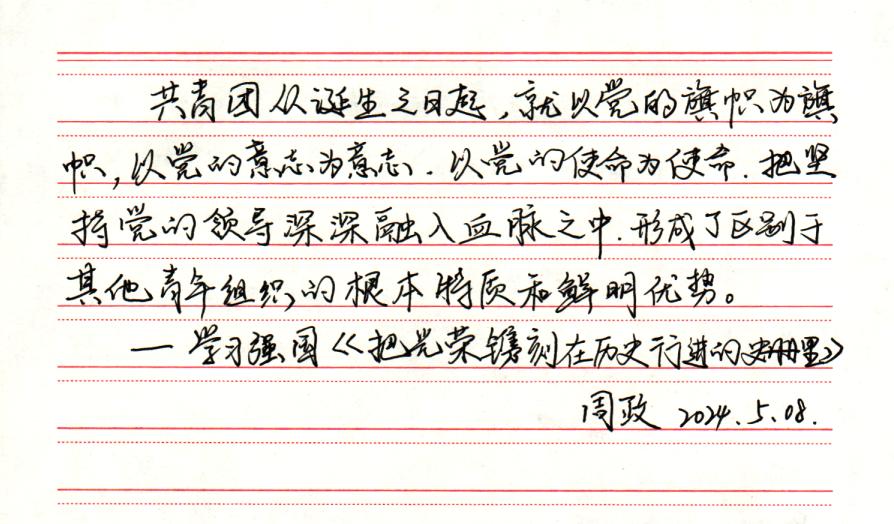 共青团从诞生之日起，就以党的旗帜为旗
帜，以党的意志为意志．以党的使命为使命．把坚
持党的领导深深融入血脉之中．形成了区别于
其他青年组织的根本特质和鲜明优势。
— 学习强国《把光荣镌刻在历史行进的史册里》
周政 2024.5.08.